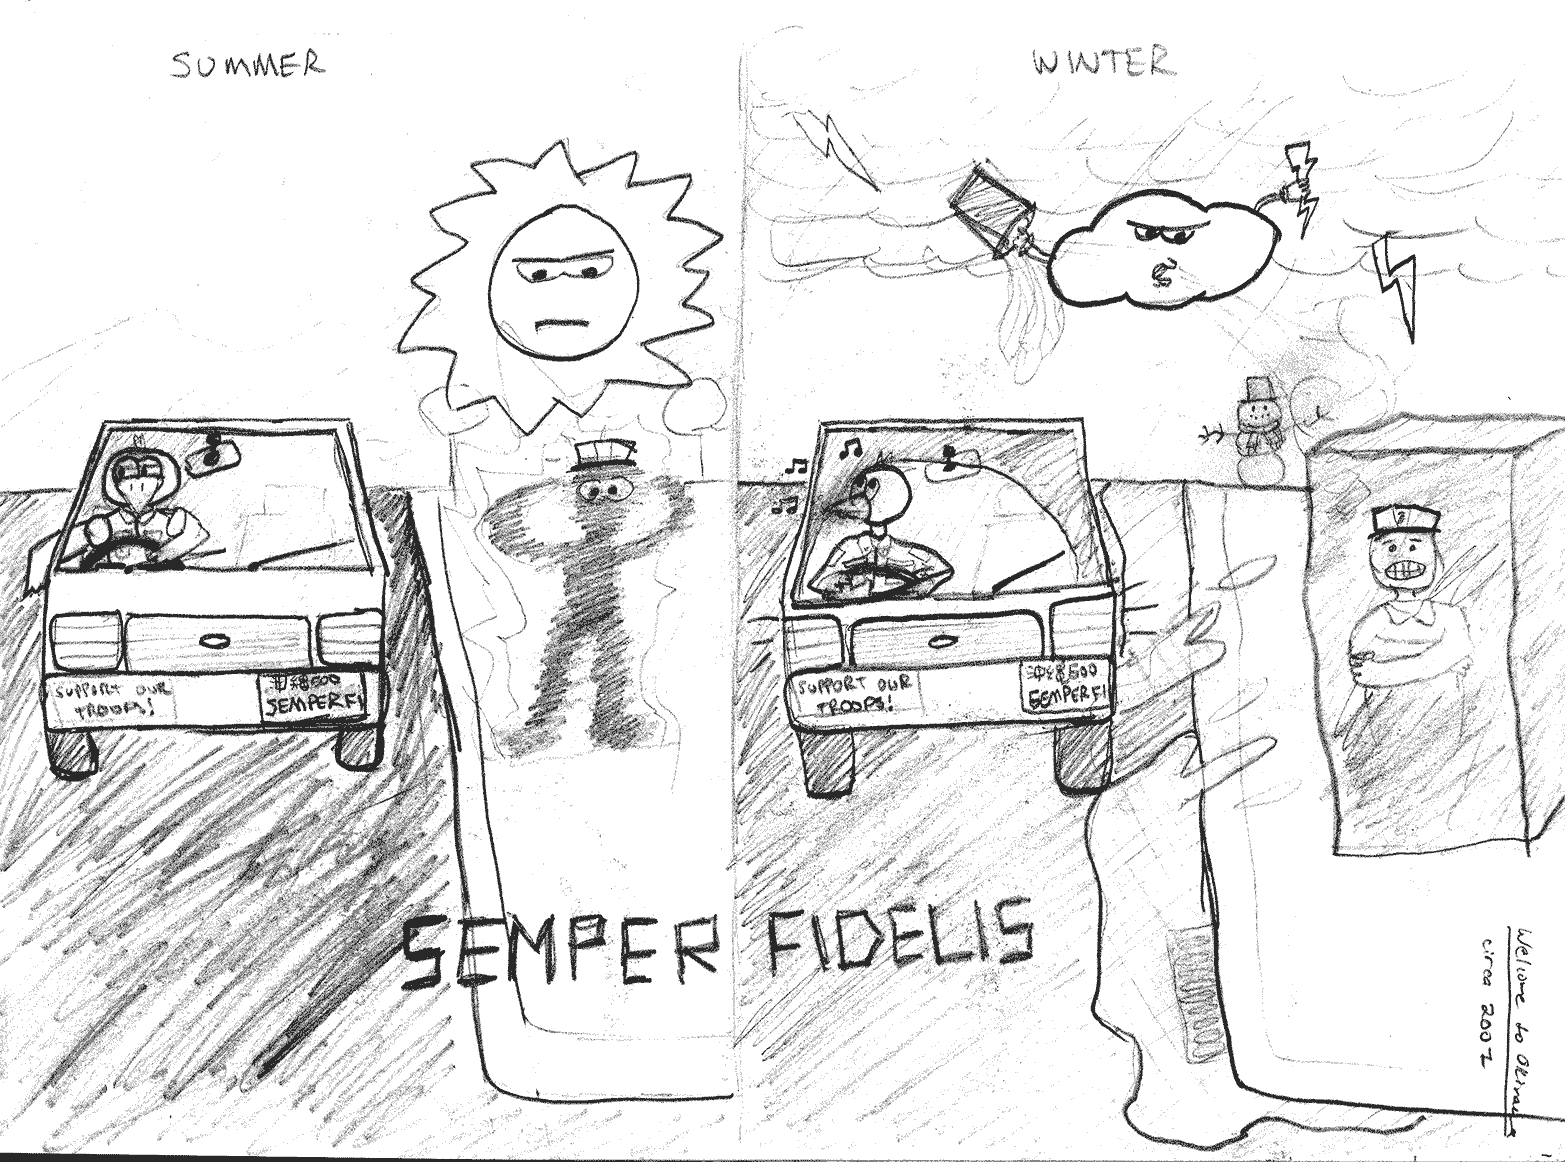 SUMMER
WINTER
SUPPORT OUR
TROOPS!
SEMPER FI
SUPPORT OUR
TROOPS!
SEMPER FI
SEMPER FIDELIS
Welcome to
circa 2002